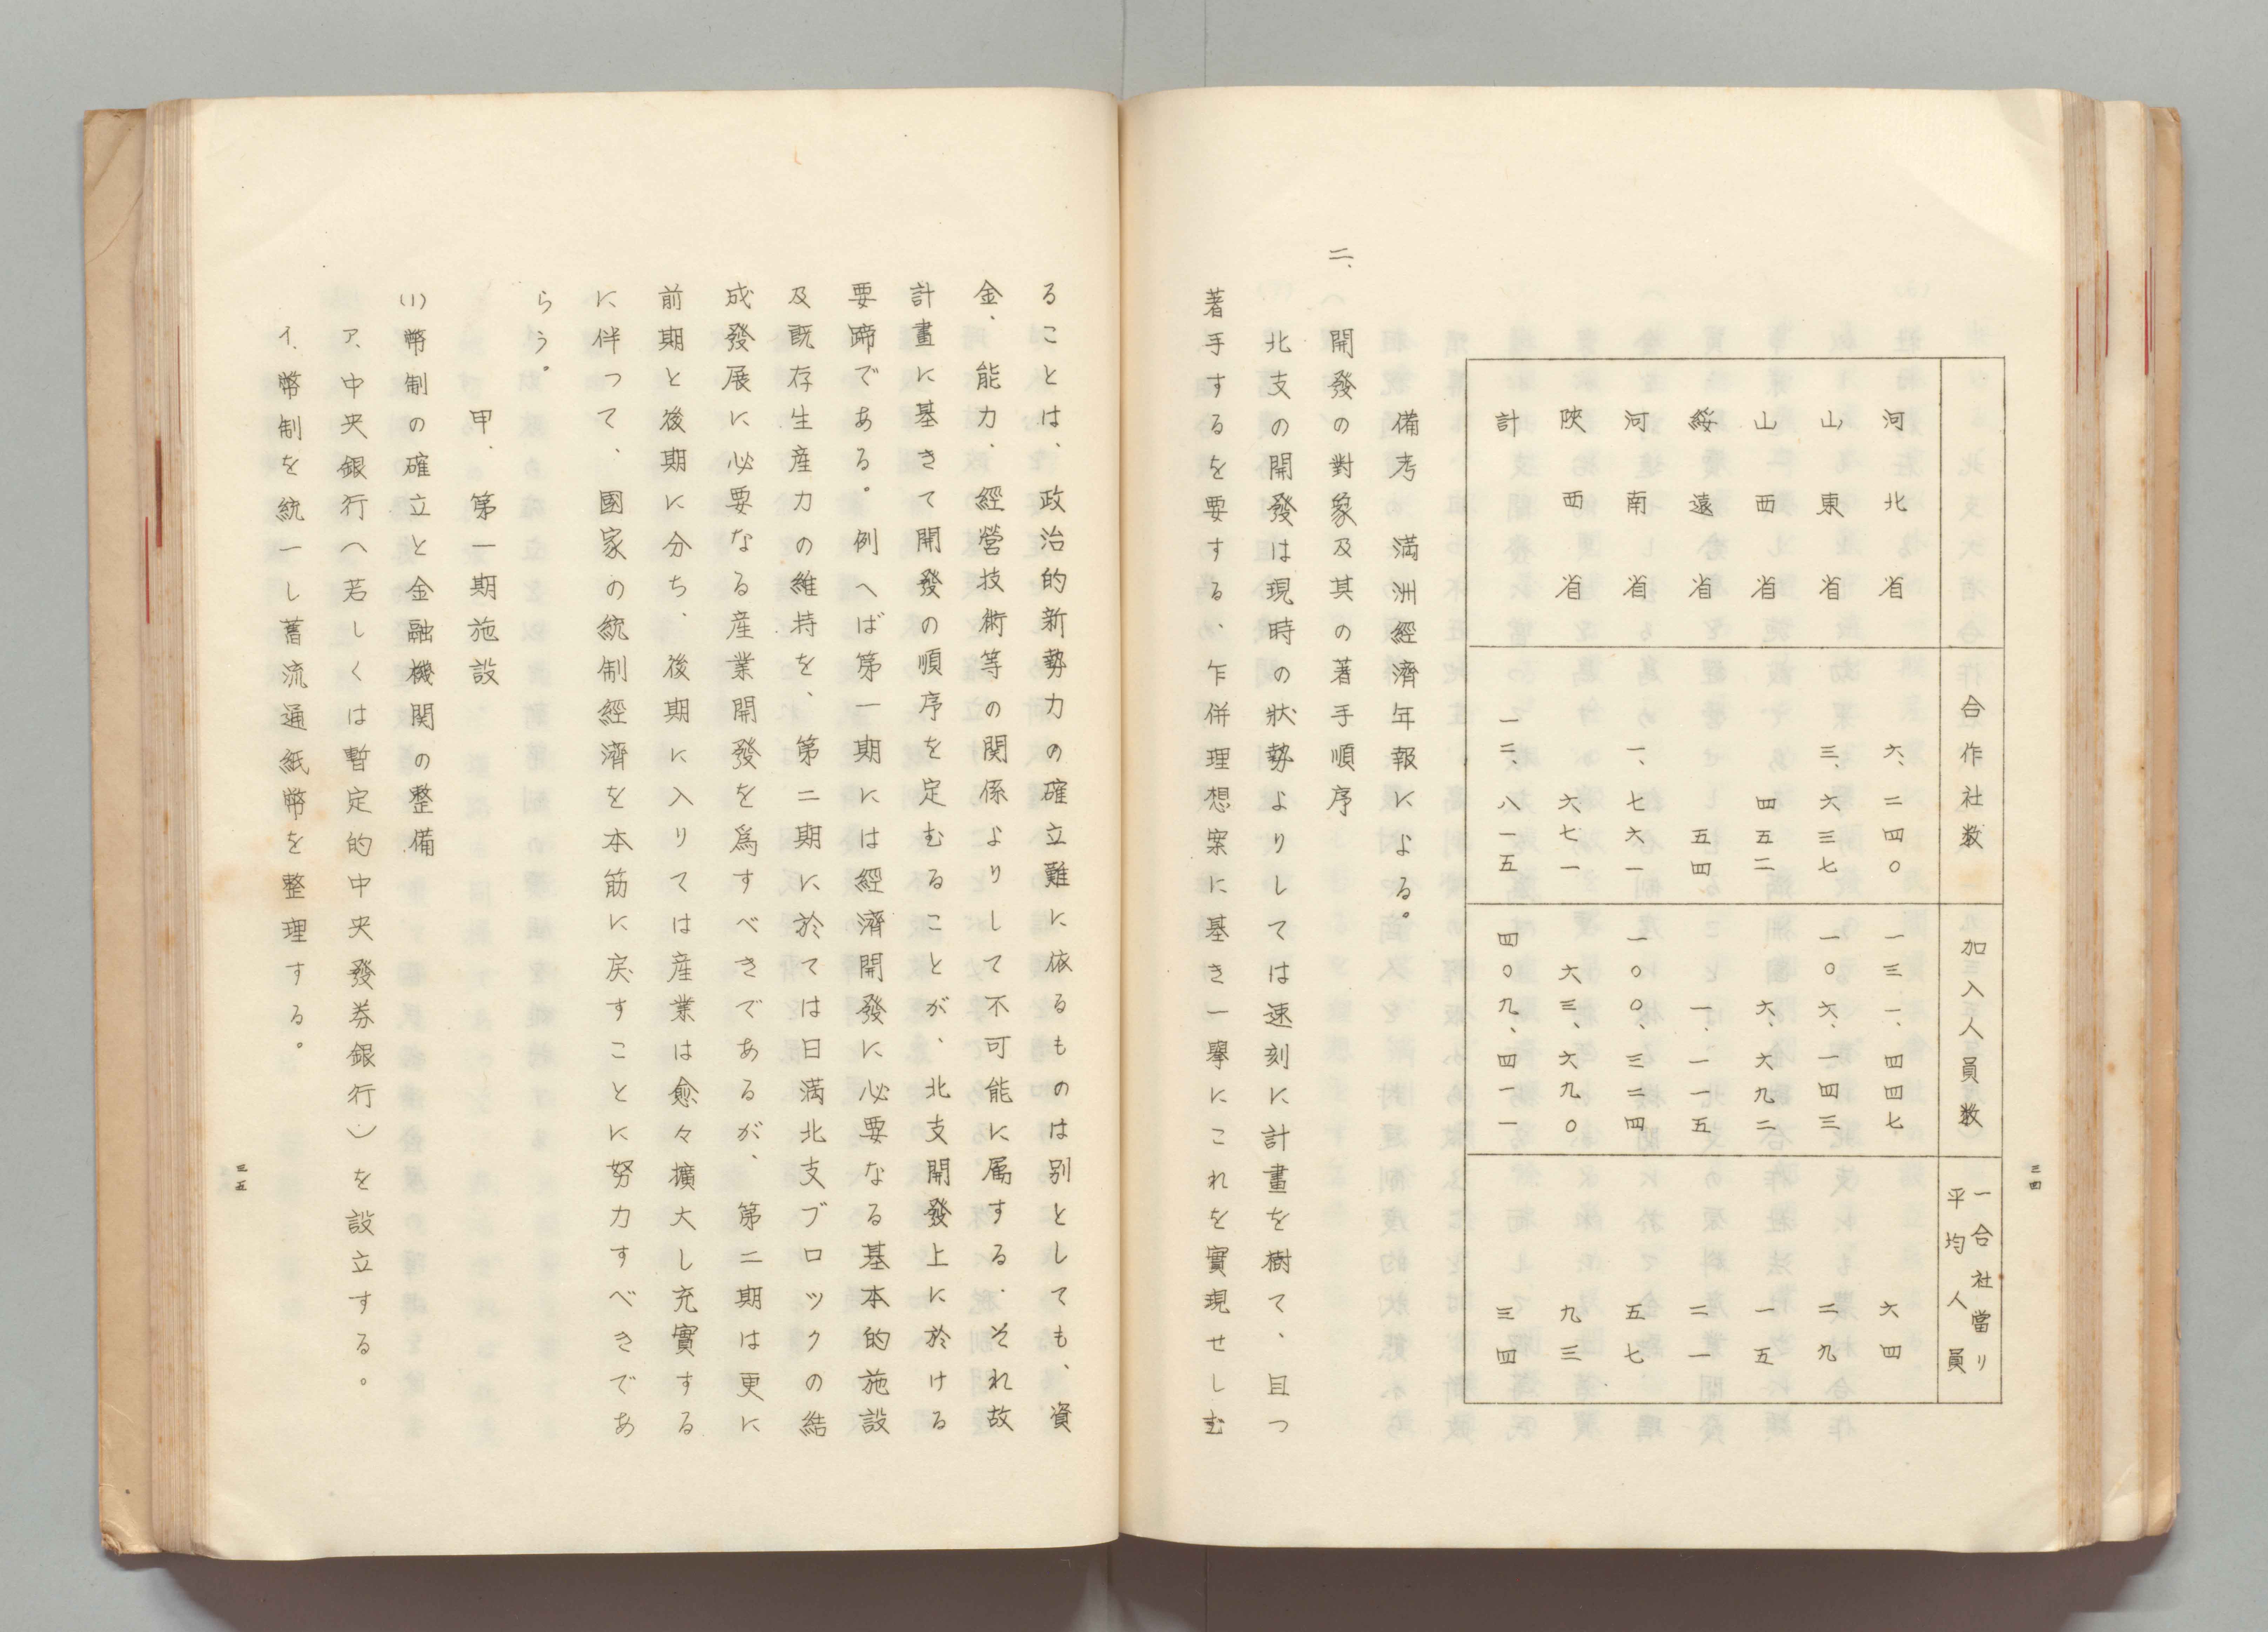 三四
合作社数 加入人員数 一合社當り平均人員
河北省 六、二四〇 一三一、四四七 六四
山東省 三、六三七 一〇六、一四三 二九
山西省 四五二 六、六九二 一五
綏遠省 五四 一、一一五 二一
河南省 一、七六一 一〇〇、三二四 五七
陝西省 六七一 六三、六九〇 九三
計 一二、八一五 四〇九、四一一 三四
備考 満洲經濟年報による。
二、開發の對象及其の著手順序
北支の開發は現時の狀勢よりしては速刻に計畫を樹て、且つ
著手するを要する、乍併理想案に基き一擧にこれを實現せしむ
ることは、政治的新勢力の確立難に依るものは別としても、資
金、能力、經營技術等の関係よりして不可能に属する。それ故
計畫に基きて開發の順序を定むることが、北支開發上に於ける
要蹄である。例へば第一期には經濟開發に必要なる基本的施設
及既存生産力の維持を、第二期に於ては日満北支ブロックの結
成發展に必要なる産業開發を爲すべきであるが、第二期は更に
前期と後期に分ち、後期に入りては産業は愈々擴大し充實する
に伴つて、國家の統制經濟を本筋に戻すことに努力すべきであ
らう。
甲、第一期施設
(1)幣制の確立と金融機関の整備
ア、中央銀行(若しくは暫定的中央發券銀行)を設立する。
イ、幣制を統一し舊流通紙幣を整理する。
三五